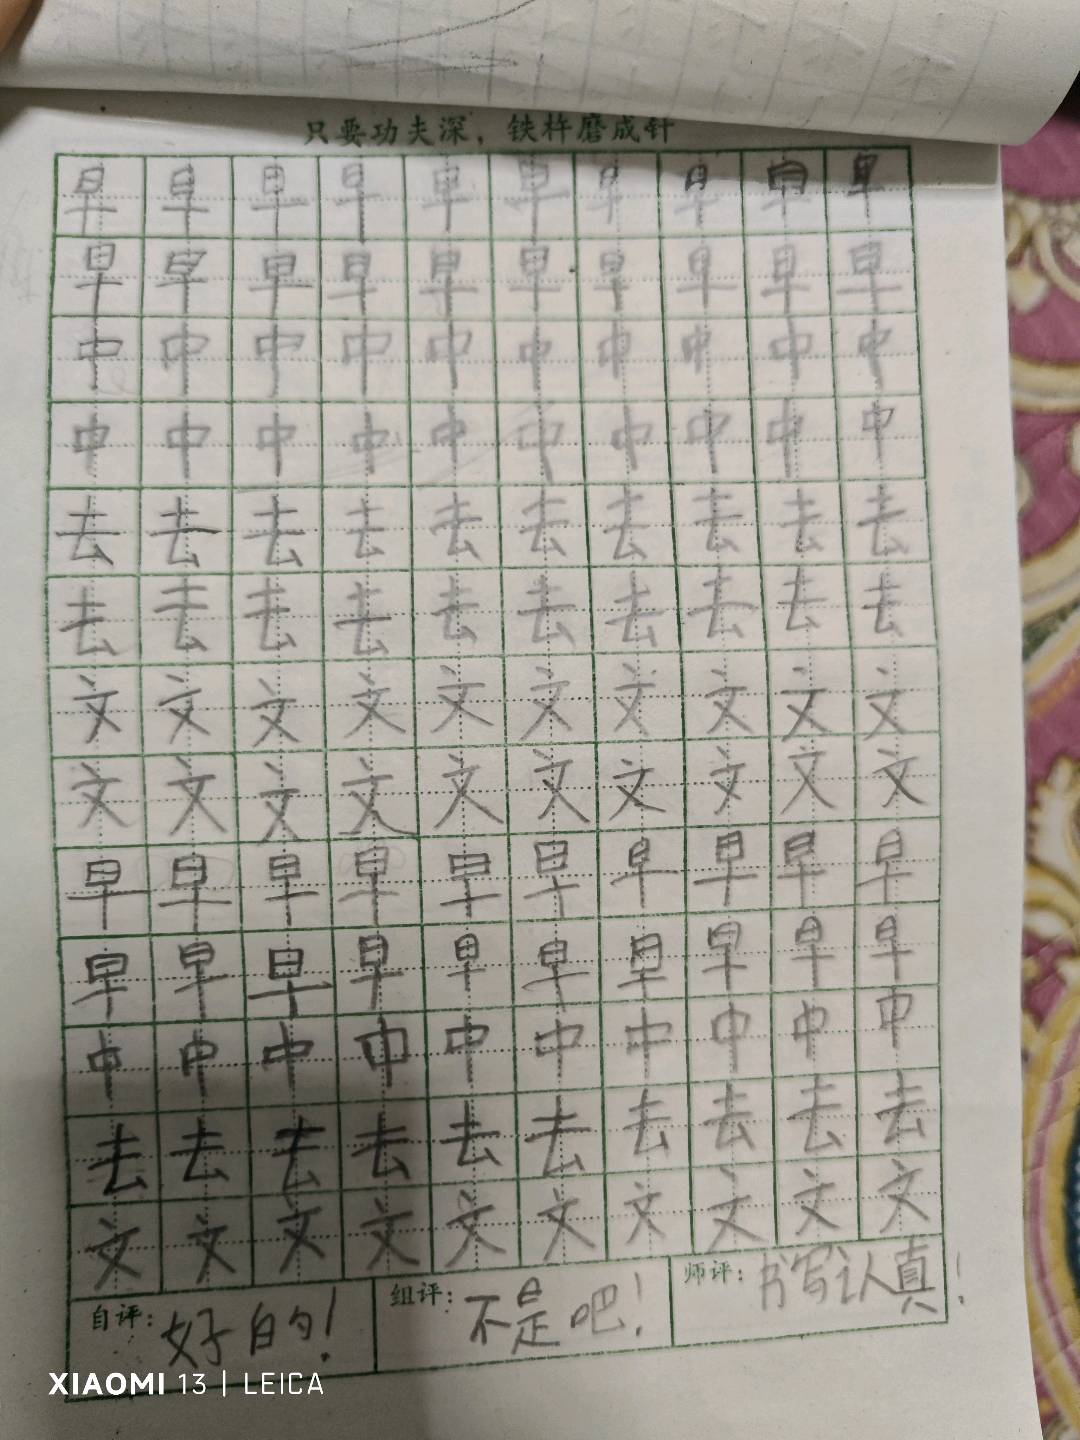 只要功夫深，铁杵磨成针
早早早早早早早早早早
早早早早早早早早早早
中中中中中中中中中中
中中中中中中中中中中
去去去去去去去去去去
去去去去去去去去去去
文文文文文文文文文文
文文文文文文文文文文
早早早早早早早早早早
早早早早早早早早早早
中中中中中中中中中中
去去去去去去去去去去
文文文文文文文文文文
自评：好的！ 组评：不是吧！ 师评：书写认真！
XIAOMI 13 | LEICA